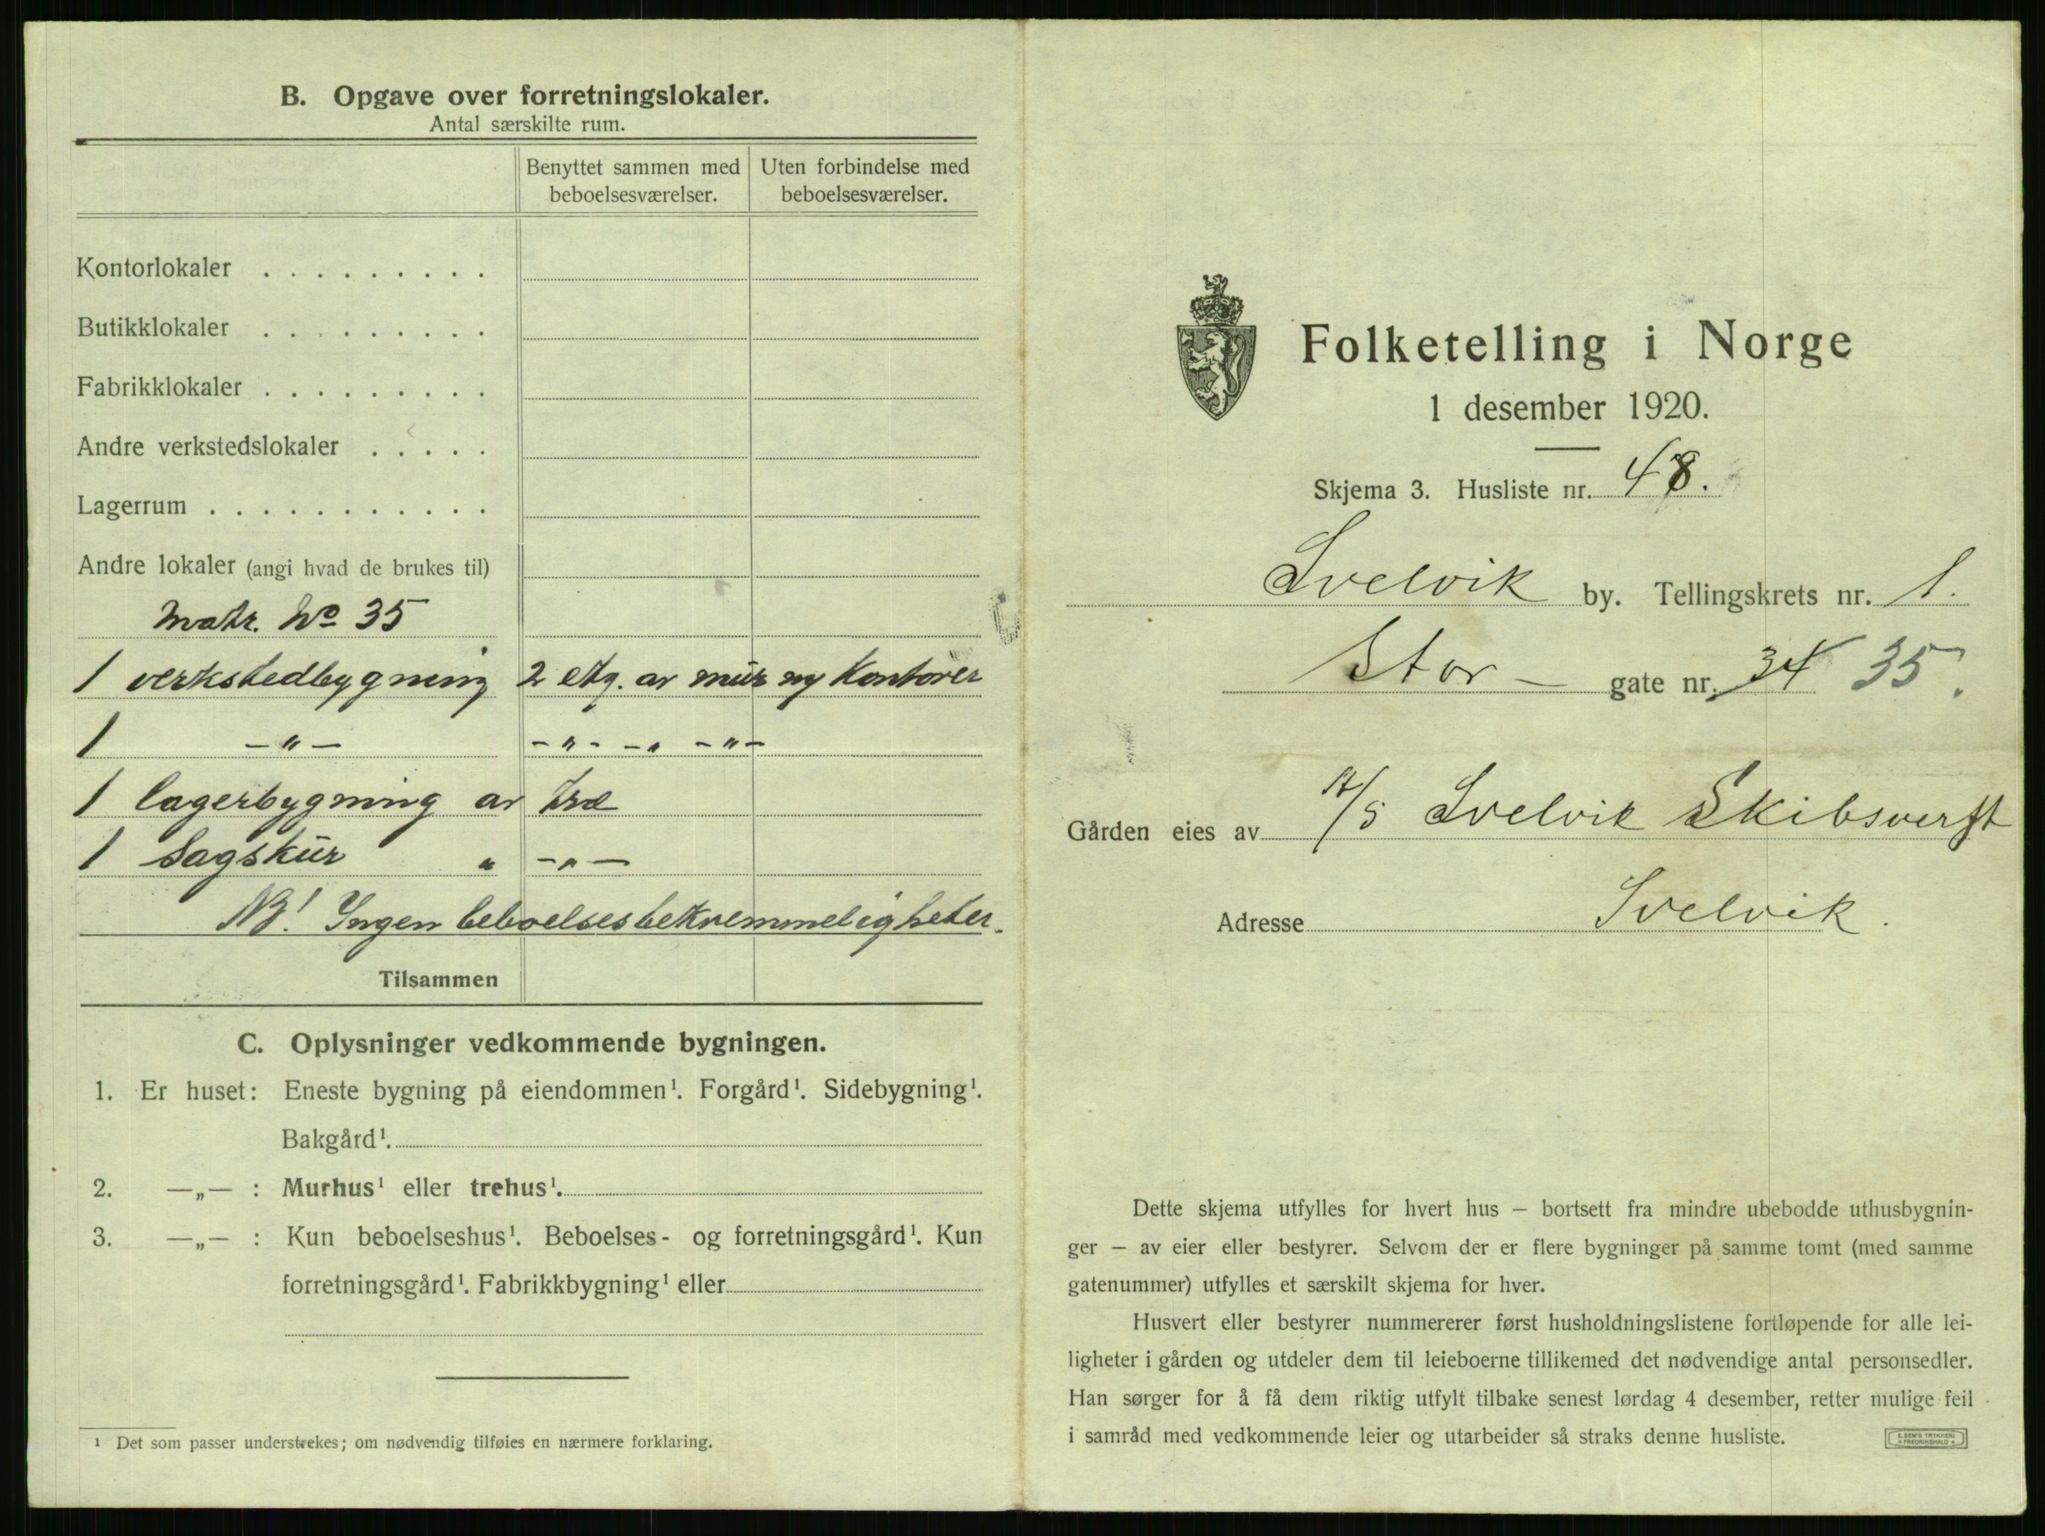 B. Opgave over forretningslokaler.
Antal særskilte rum.
Benyttet sammen med beboelsesværelser.
Uten forbindelse med beboelsesværelser.
Kontorlokaler . . . . . . . . .
Butikklokaler . . . . . . . . .
Fabrikklokaler . . . . . . . . .
Andre verkstedslokaler . . . . .
Lagerrum . . . . . . . . . . . .
Andre lokaler (angi hvad de brukes til)
Matr. No 35
1 verkstedbygning 2 etg. av mur og Kontorer
1 —„— -„- -„ -„-
1 lagerbygning av træ
1 Sagskur „ -„-
NB! Ingen beboelsesbekvemmeligheter.
Tilsammen
C. Oplysninger vedkommende bygningen.
1. Er huset: Eneste bygning på eiendommen¹. Forgård¹. Sidebygning¹.
Bakgård¹.
2. —„— : Murhus¹ eller trehus¹.
3. —„— : Kun beboelseshus¹. Beboelses- og forretningsgård¹. Kun
forretningsgård¹. Fabrikkbygning¹ eller
¹ Det som passer understrekes; om nødvendig tilføies en nærmere forklaring.
Folketelling i Norge
1 desember 1920.
Skjema 3. Husliste nr. 48.
Svelvik by. Tellingskrets nr. 1.
Stor- gate nr. 34 35.
Gården eies av A/S Svelvik Skibsverft
Adresse Svelvik.
Dette skjema utfylles for hvert hus – bortsett fra mindre ubebodde uthusbygnin-
ger – av eier eller bestyrer. Selvom der er flere bygninger på samme tomt (med samme
gatenummer) utfylles et særskilt skjema for hver.
Husvert eller bestyrer nummererer først husholdningslistene fortløpende for alle lei-
ligheter i gården og utdeler dem til leieboerne tillikemed det nødvendige antal personsedler.
Han sørger for å få dem riktig utfylt tilbake senest lørdag 4 desember, retter mulige feil
i samråd med vedkommende leier og utarbeider så straks denne husliste.
E. SEM'S TRYKKERI
FREDRIKSHALD